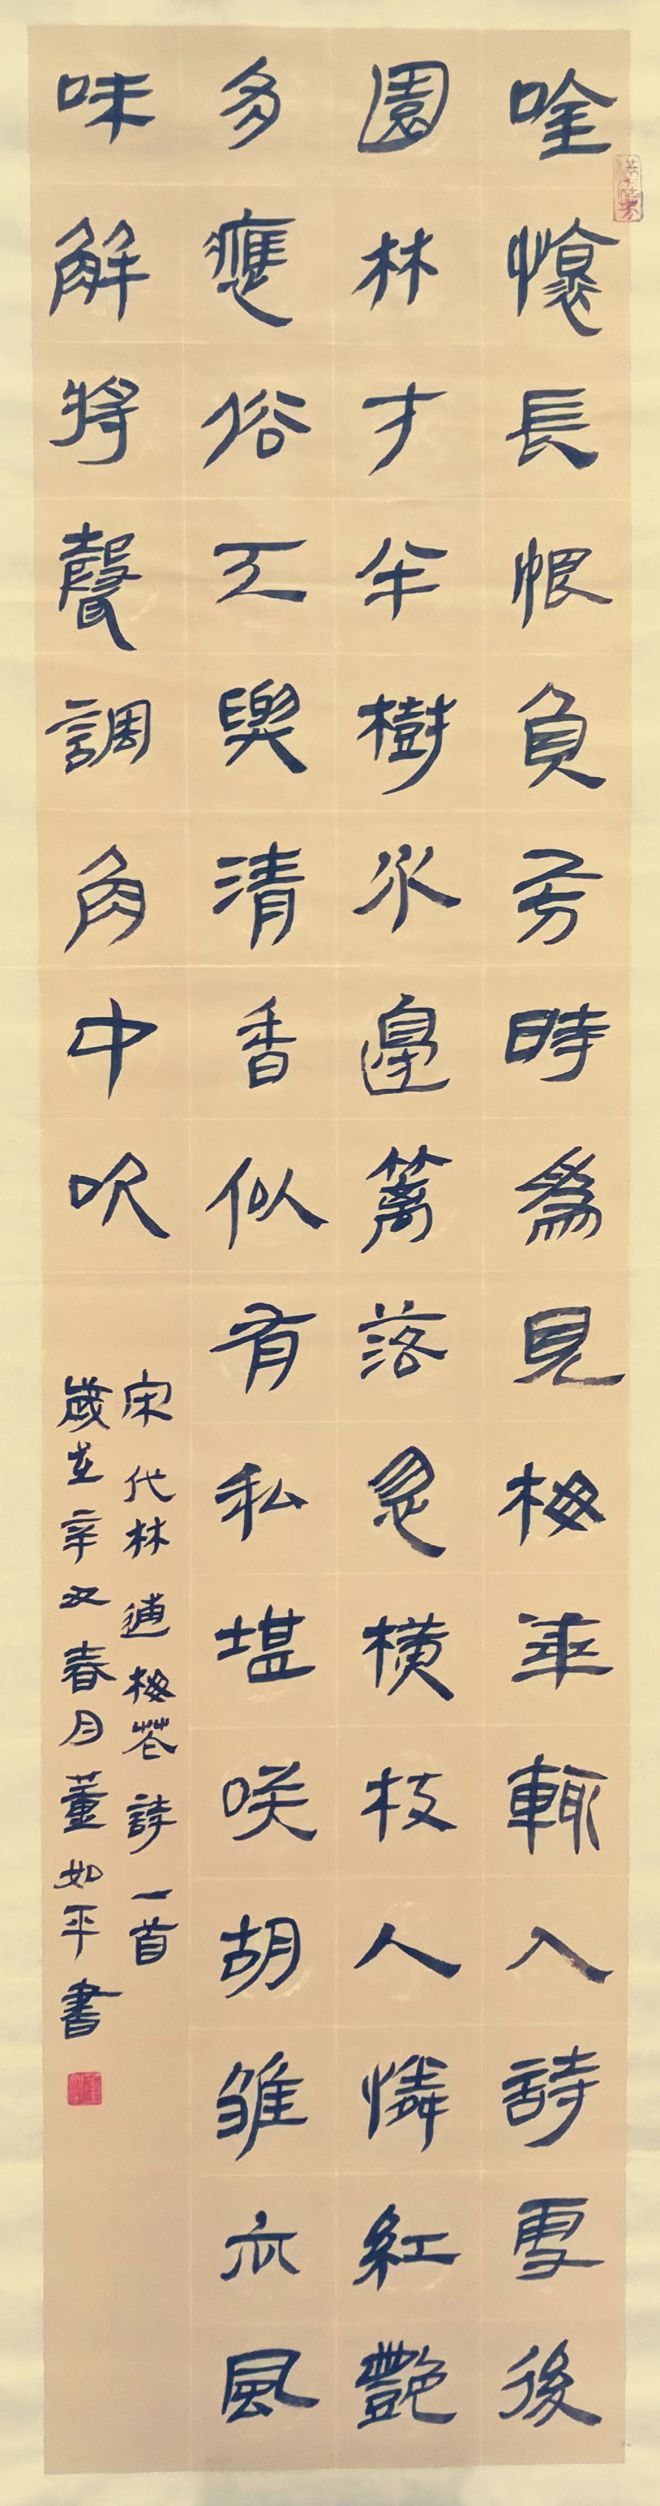 唫懷長恨負芳時為見梅華輒入詩雪後
園林才半樹水邊籬落忽橫枝人憐紅豔
多應俗天與清香似有私堪咲胡雏亦風
味解將聲調角中吹
宋代林逋梅花詩一首
歲在辛丑春月董如平書